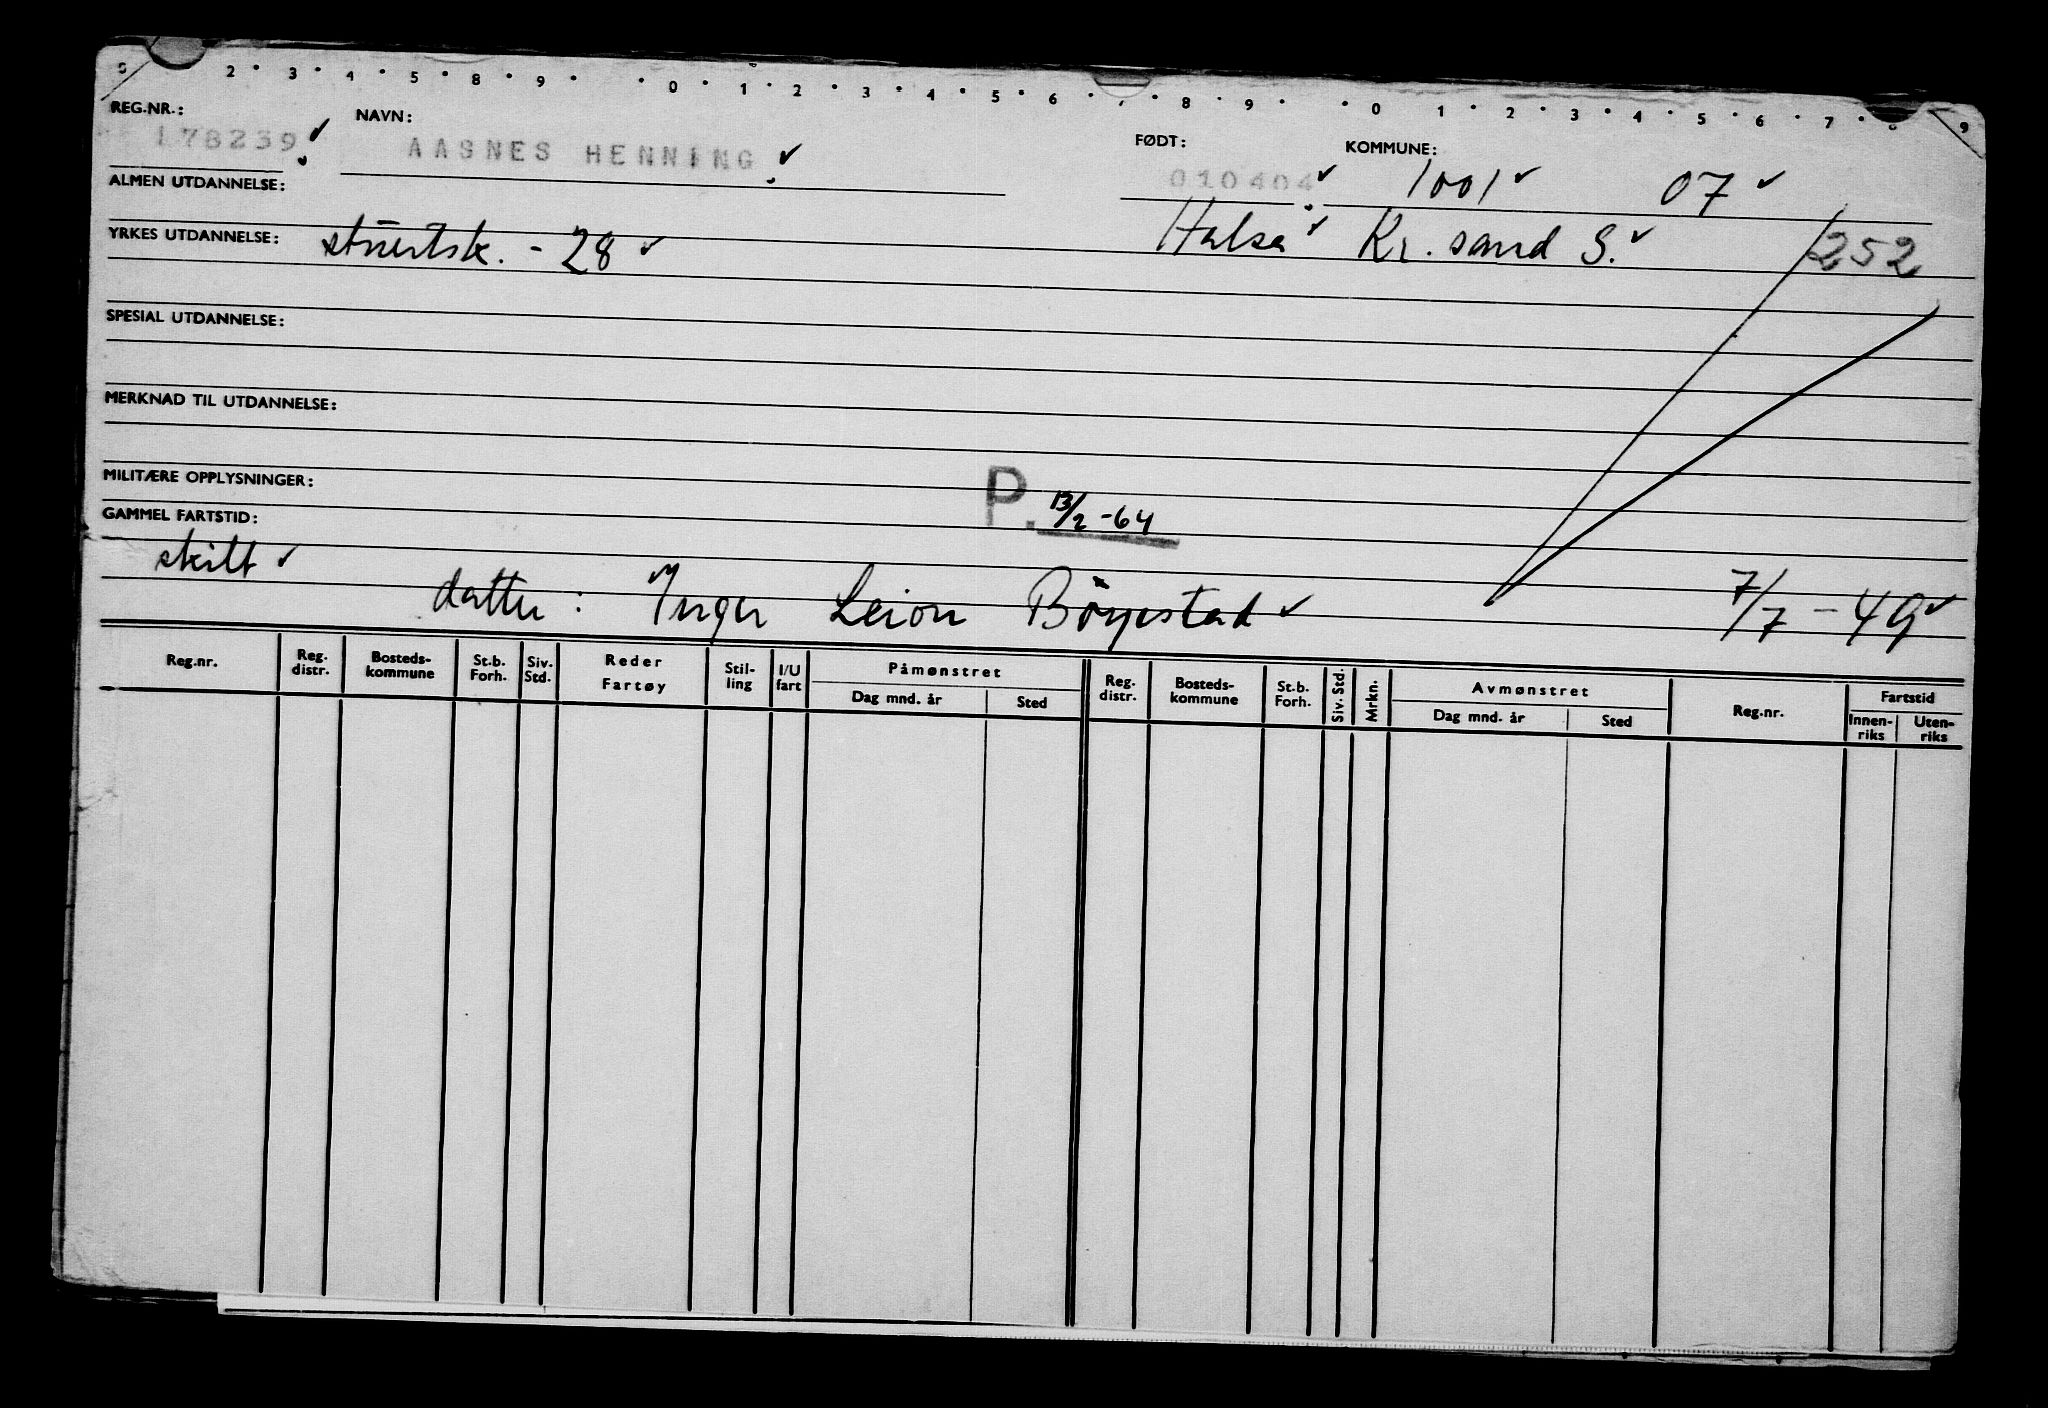 0 2 · 3 · 4 · 5 · 8 · 9 · · 0 · 1 · 2 · 3 · 4 · 5 · 6 · 7 · 8 · 9 · · 0 1 · 2 · 3 · 4 · 5 · 6 · 7 · 8 · 9
REG.NR.: NAVN: FØDT: KOMMUNE:
178239 AASNES HENNING 010404 1001 07
ALMEN UTDANNELSE:
Halså Kr. sand S. 252
YRKES UTDANNELSE: stuertsk. - 28
SPESIAL UTDANNELSE:
MERKNAD TIL UTDANNELSE:
MILITÆRE OPPLYSNINGER:
P. 13/2 -64
GAMMEL FARTSTID:
skilt
datter: Inger Bøyestad 7/7 - 49
Reg.nr. Reg. distr. Bosteds- kommune St.b. Forh. Siv. Std. Reder Fartøy Stil- ling I/U fart Påmønstret Dag mnd. år Sted Reg. distr. Bosteds- kommune St.b. Forh. Siv. Std. Mrkn. Avmønstret Dag mnd. år Sted Reg.nr. Fartstid Innen- riks Uten- riks